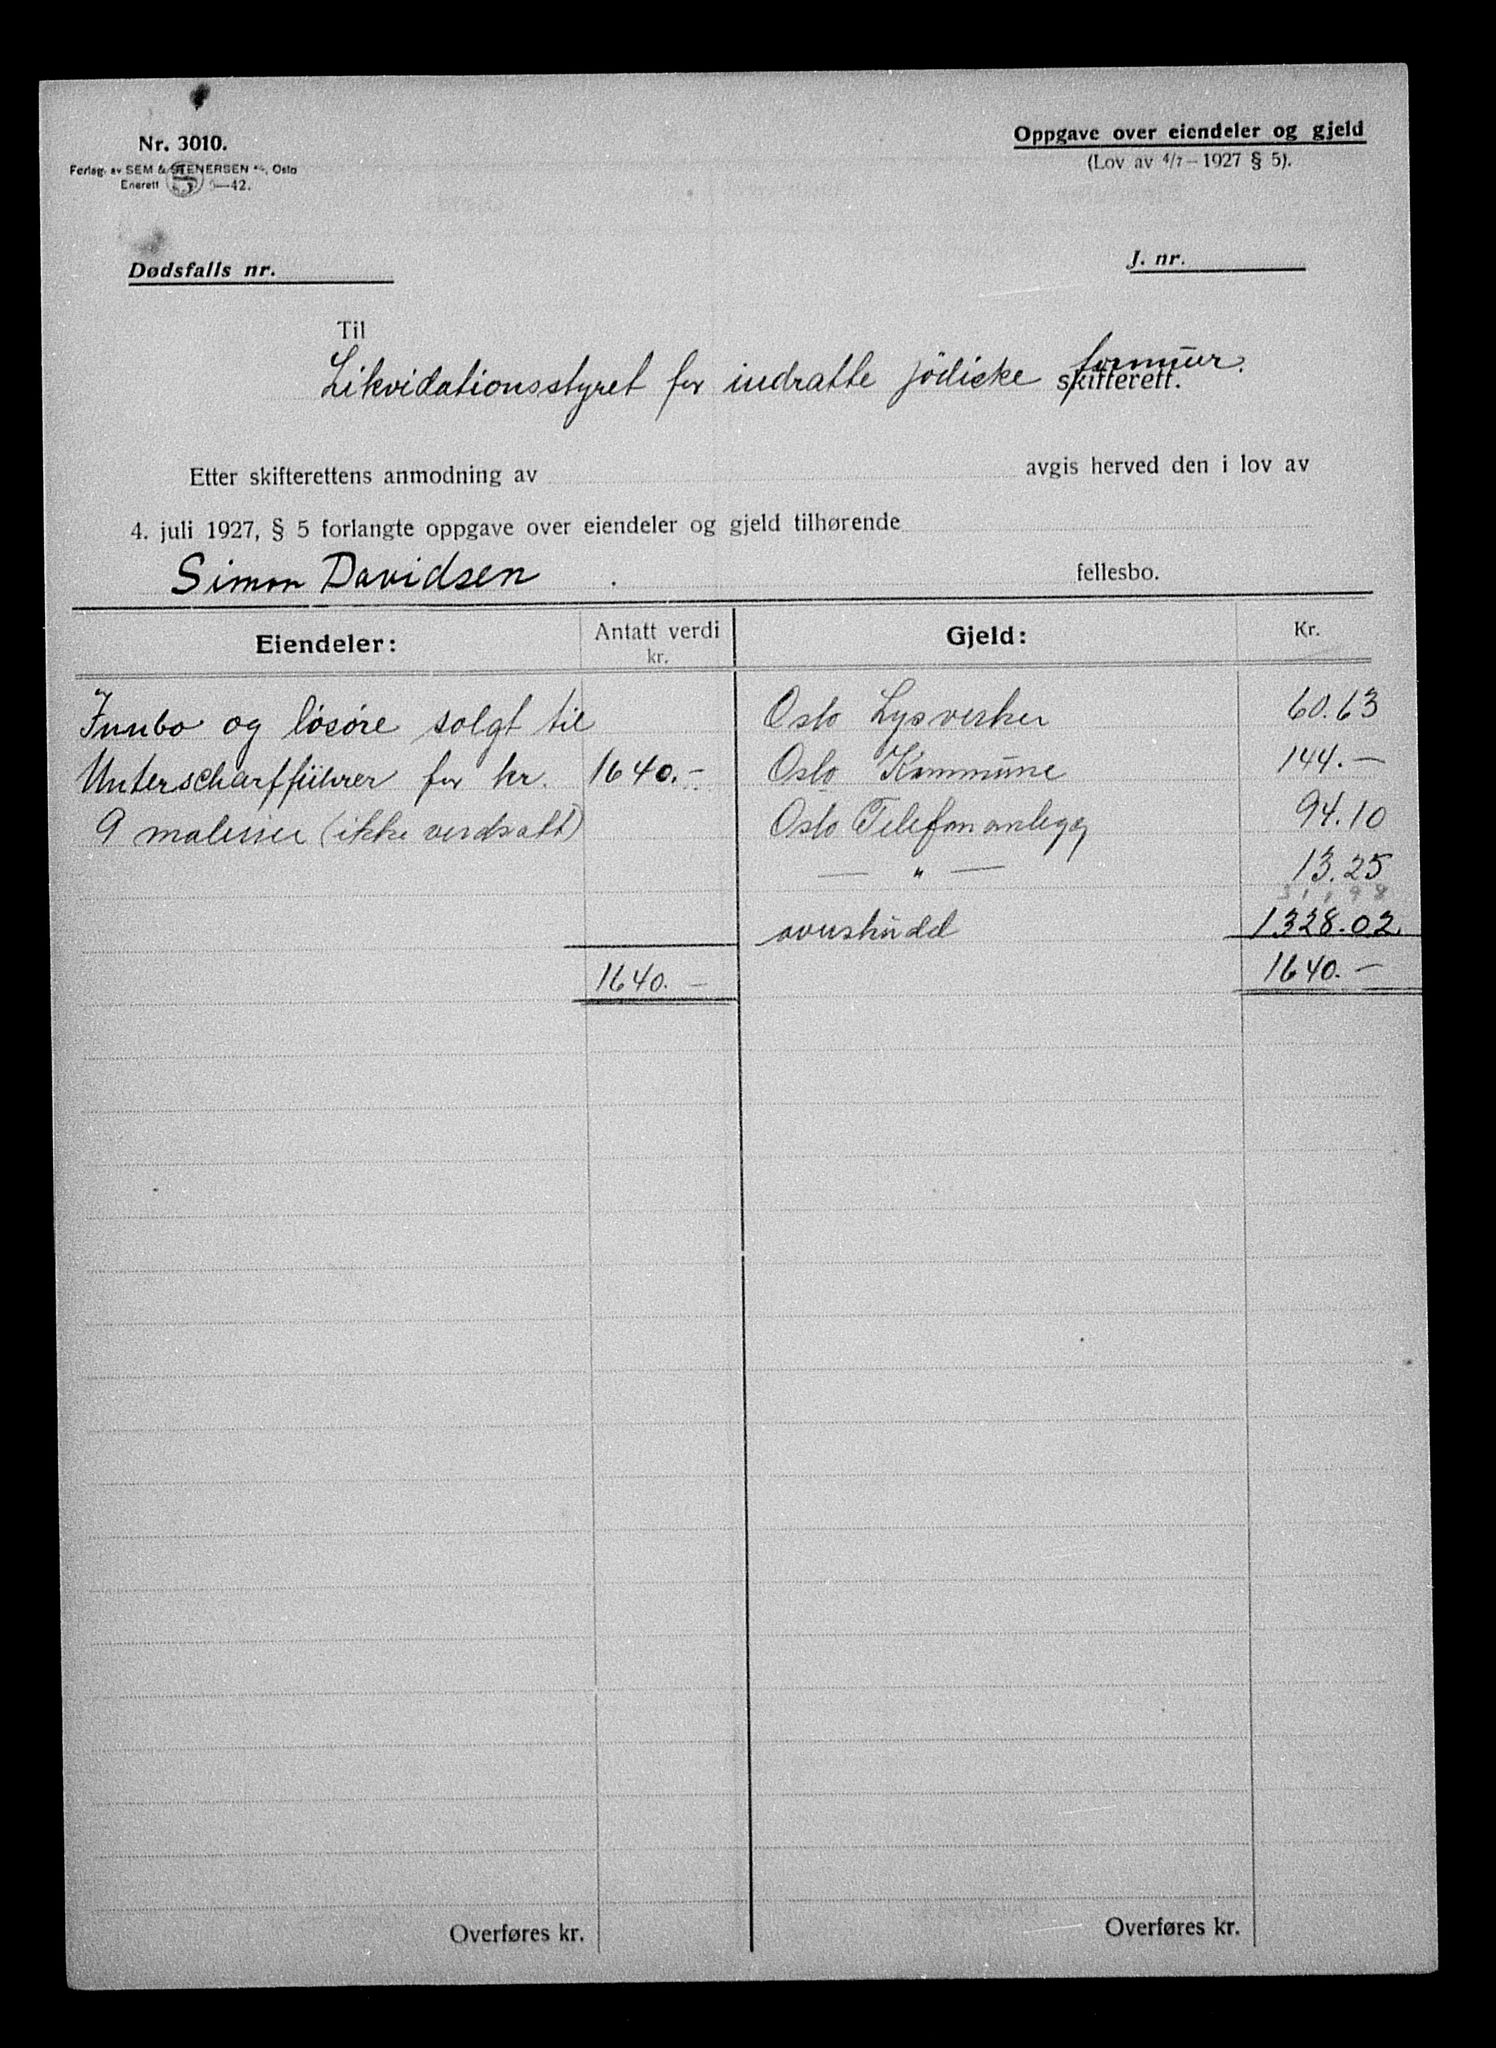 Nr. 3010.
Forlag av SEM & STENERSEN A/S, Oslo
Enerett 5—42.
Oppgave over eiendeler og gjeld
(Lov av 4/7 – 1927 § 5).
Dødsfalls nr.
J. nr.
Til
Likvidationsstyret for indratte jödiske formuer.
skifterett.
Etter skifterettens anmodning av avgis herved den i lov av
4. juli 1927, § 5 forlangte oppgave over eiendeler og gjeld tilhørende
Simon Davidsen fellesbo.
Eiendeler: Antatt verdi kr. Gjeld: Kr.
Innbo og lösöre solgt til Oslo Lysverker 60.63
Unterscharfführer for kr. 1640.— Oslo Kommune 144.—
9 malerier (ikke verdsatt) Oslo Telefonanlegg 94.10
— " — 13.25
311,98
overskudd 1328.02
1640.— 1640.—
Overføres kr. Overføres kr.